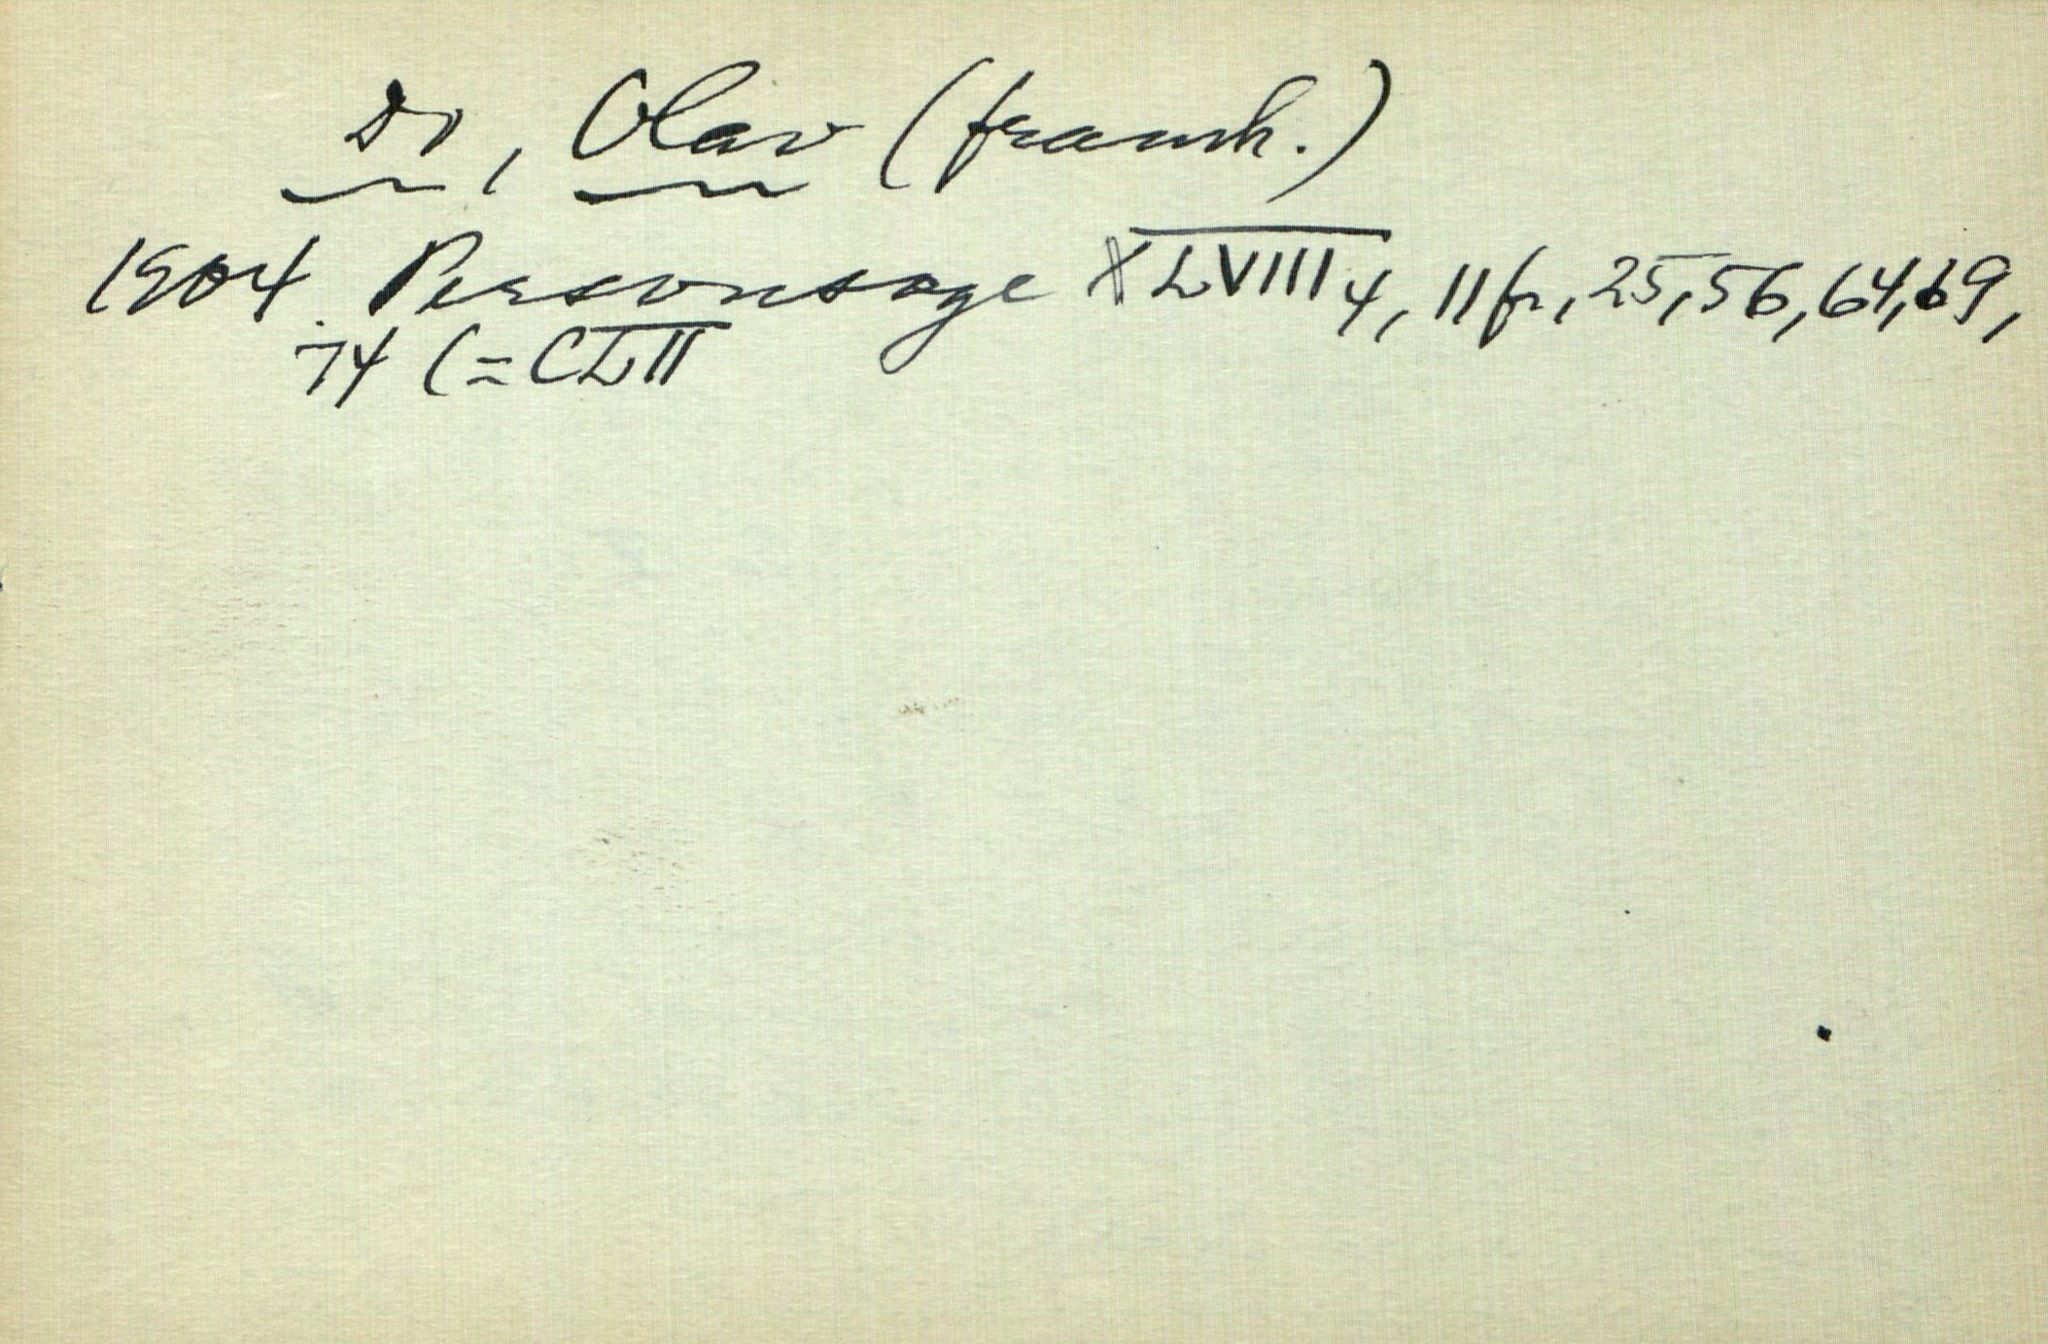 Do, Olav (fransk.)
1904 Personsoge XLVIII 4, 11fr, 25, 56, 64, 69,
74 (=CLII